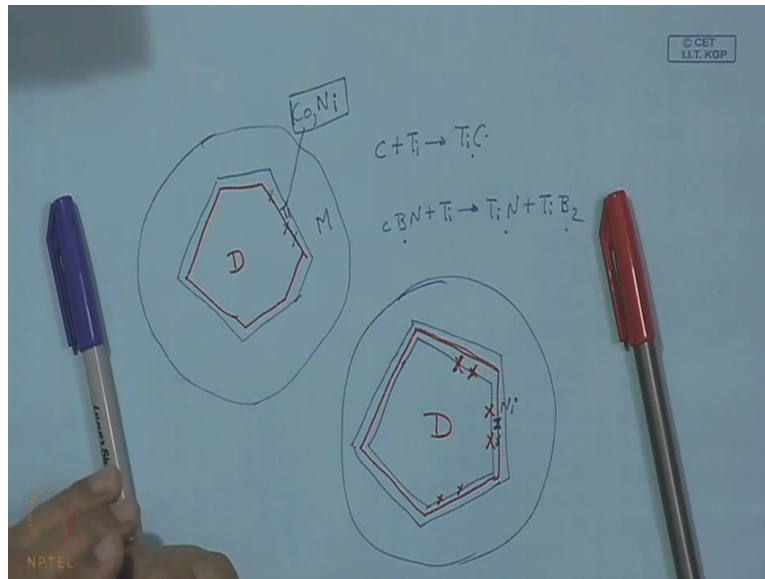 © CET
I.I.T. KGP
Co, Ni
C + Ti → TiC
M
cBN + Ti → TiN + TiB2
D
Ni
D
NPTEL